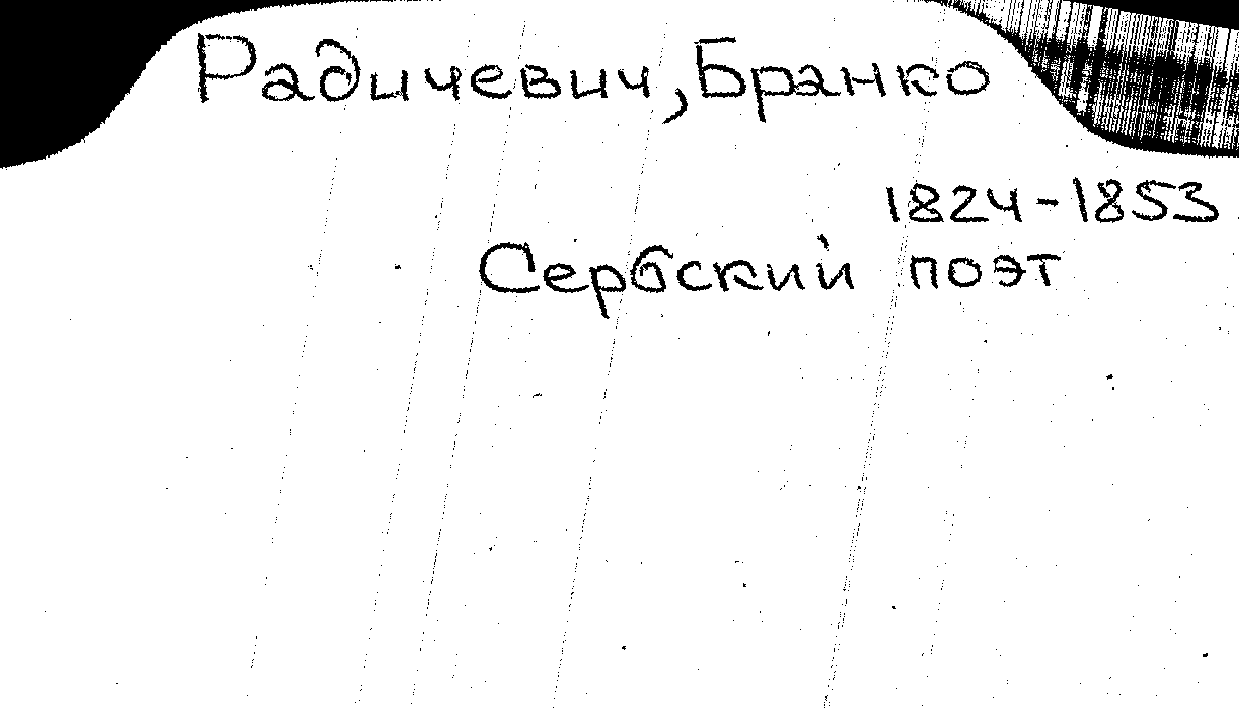 Радичевич, Бранко
1824-1853
Сербский поэт